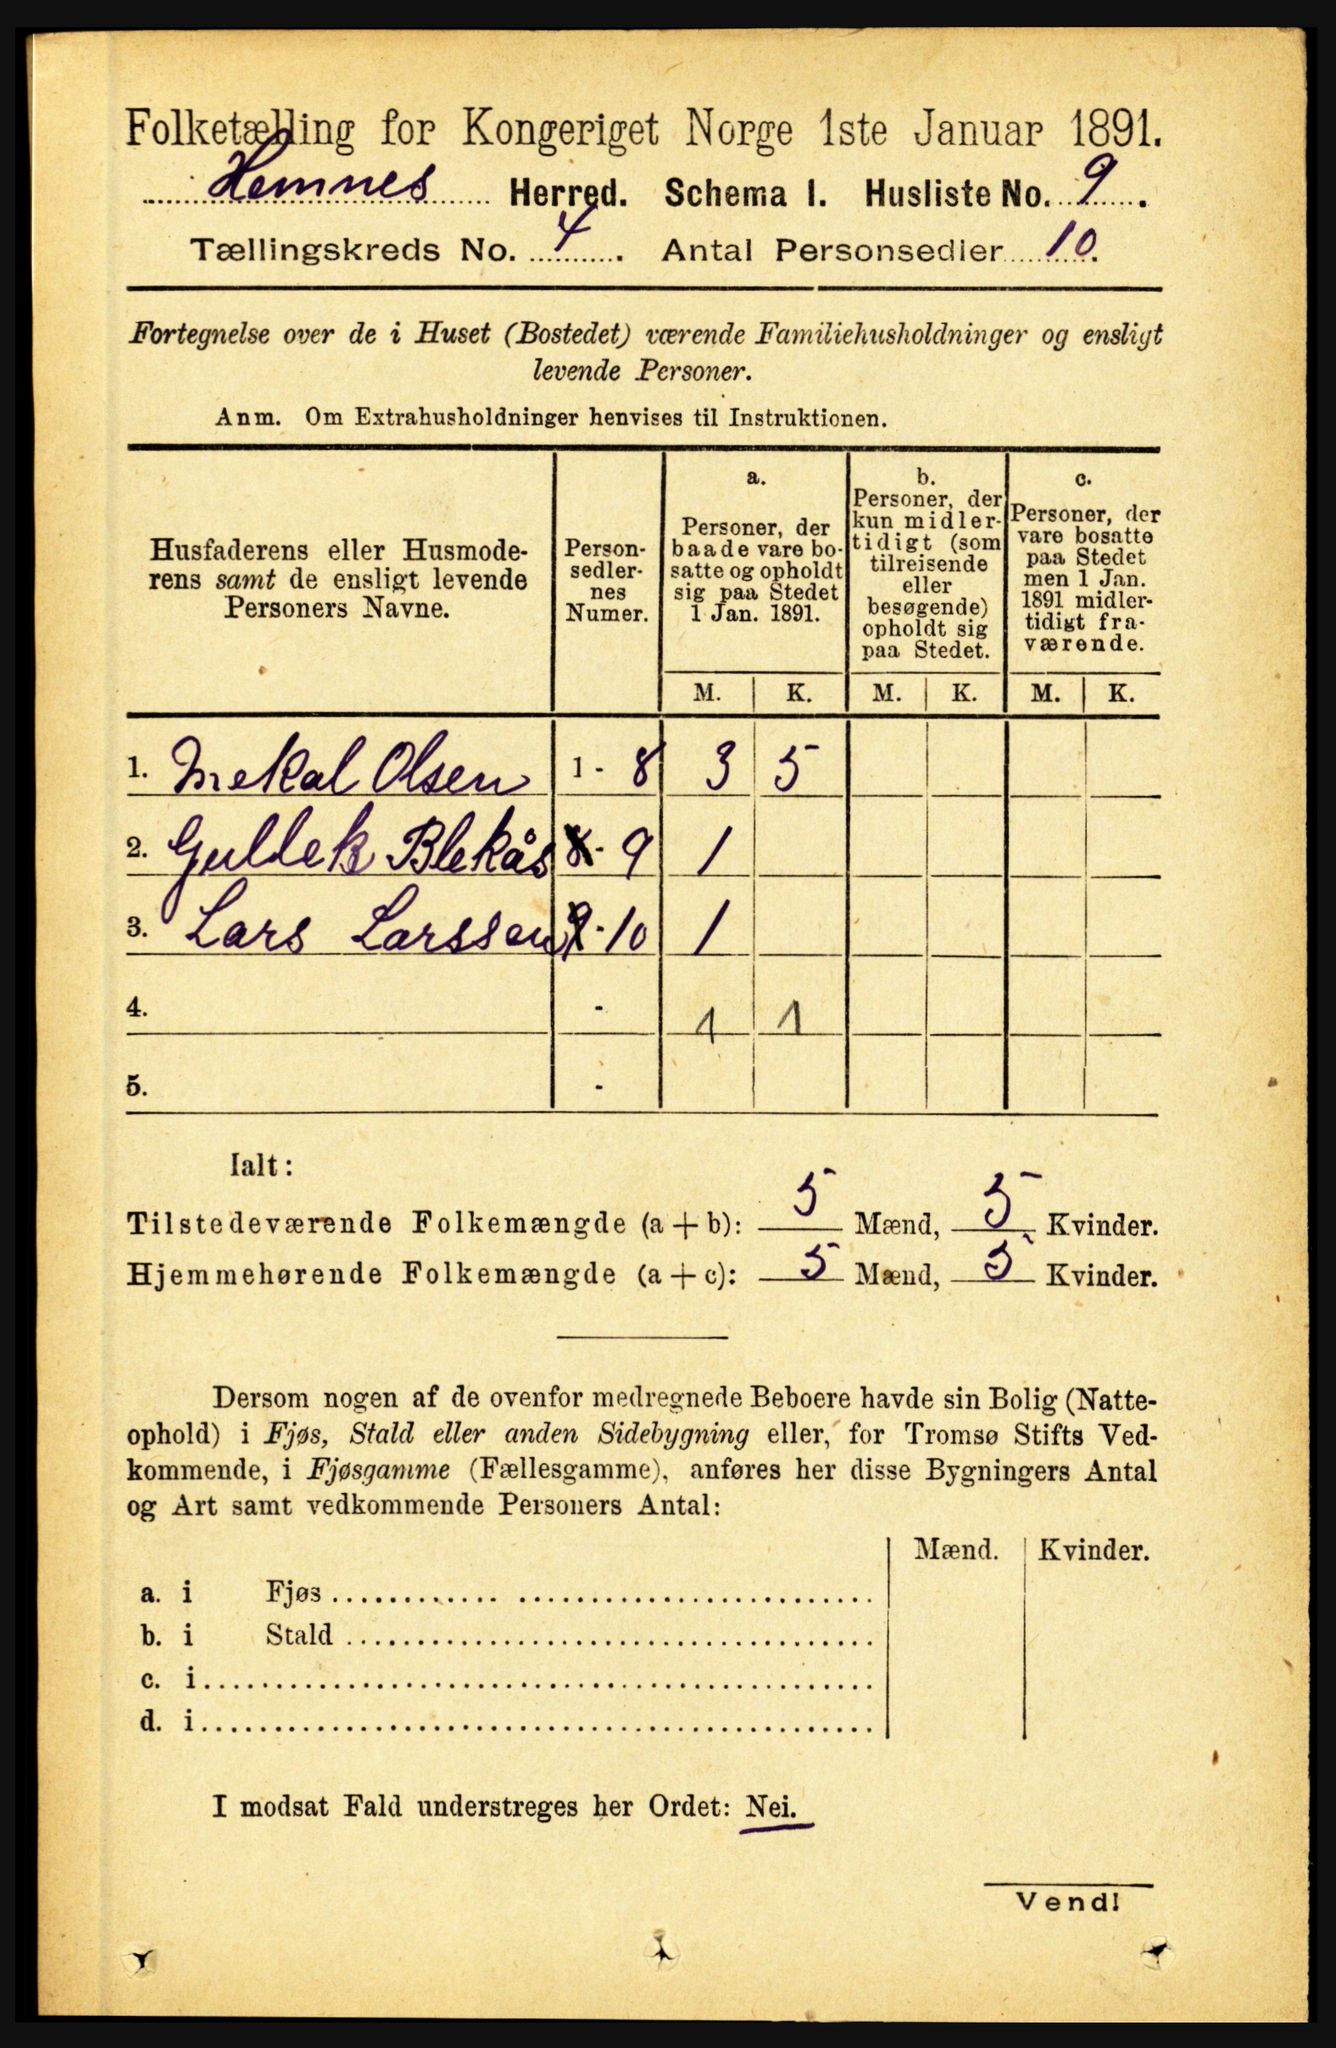 Folketælling for Kongeriget Norge 1ste Januar 1891.
Hemnes Herred. Schema I. Husliste No. 9.
Tællingskreds No. 4. Antal Personsedler 10.
Fortegnelse over de i Huset (Bostedet) værende Familiehusholdninger og ensligt
levende Personer.
Anm. Om Extrahusholdninger henvises til Instruktionen.
Husfaderens eller Husmode-
rens samt de ensligt levende
Personers Navne.
Person-
sedler-
nes
Numer.
a.
Personer, der
baade vare bo-
satte og opholdt
sig paa Stedet
1 Jan. 1891.
b.
Personer, der
kun midler-
tidigt (som
tilreisende
eller
besøgende)
opholdt sig
paa Stedet.
c.
Personer, der
vare bosatte
paa Stedet
men 1 Jan.
1891 midler-
tidigt fra-
værende.
M. K. M. K. M. K.
1. Mekal Olsen 1 - 8 3 5
2. Gullek Blekås 8 - 9 1
3. Lars Larssen 9 - 10 1
4. - 1 1
5. -
Ialt:
Tilstedeværende Folkemængde (a + b): 5 Mænd, 5 Kvinder.
Hjemmehørende Folkemængde (a + c): 5 Mænd, 5 Kvinder.
Dersom nogen af de ovenfor medregnede Beboere havde sin Bolig (Natte-
ophold) i Fjøs, Stald eller anden Sidebygning eller, for Tromsø Stifts Ved-
kommende, i Fjøsgamme (Fællesgamme), anføres her disse Bygningers Antal
og Art samt vedkommende Personers Antal:
Mænd. Kvinder.
a. i Fjøs
b. i Stald
c. i
d. i
I modsat Fald understreges her Ordet: Nei.
Vend!